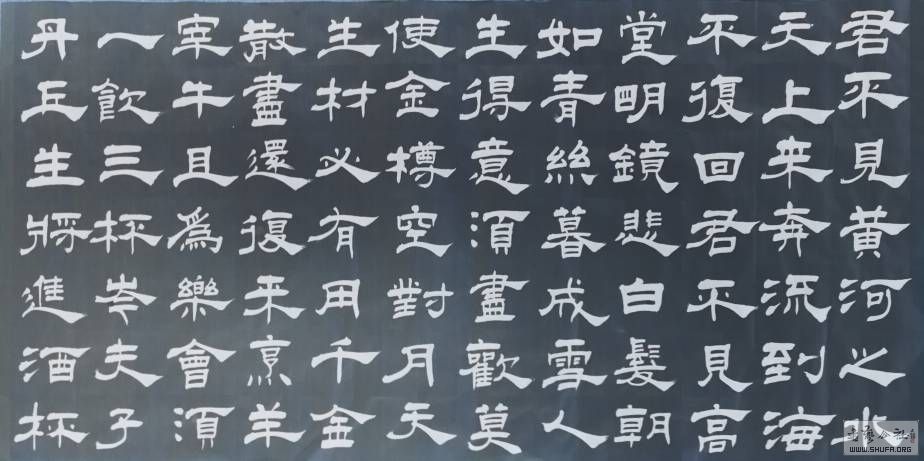 君不見黄河之水
天上来奔流到海
不復回君不見高
堂明鏡悲白髮朝
如青絲暮成雪人
生得意須盡歡莫
使金樽空對月天
生材必有用千金
散盡還復来烹羊
宰牛且為樂會須
一飲三杯岑夫子
丹丘生將進酒杯
WWW.SHUFA.ORG